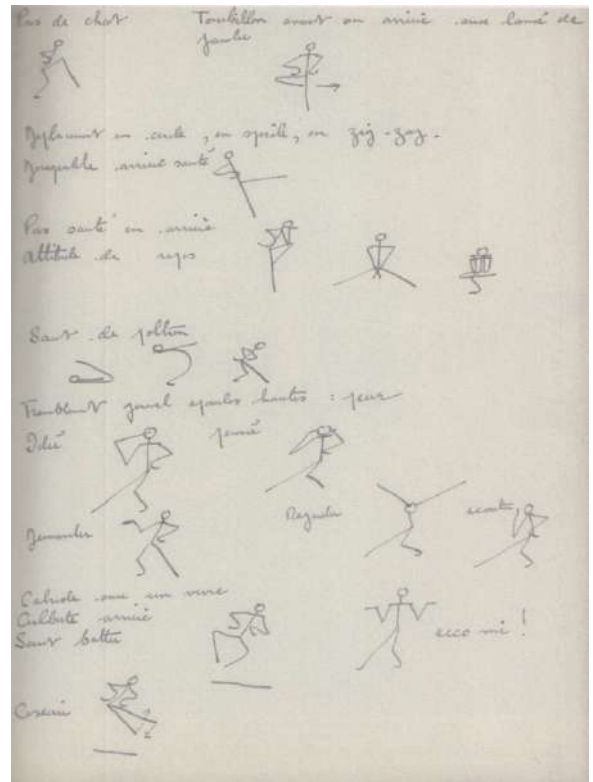 Pas de chat
Tourbillon avant ou arrière avec lancé de
jambe
Déplacement en cercle, en spirale, en zig-zag.
arrière sauté
Pas sauté en arrière
Attitude de repos
Saut de poltron
Tremblement genoux épaules hautes : peur
Idée
pensée
Demander
Regarder
écouter
Culbute avec un verre
Culbute arrière
Saut battu
ecco mi !